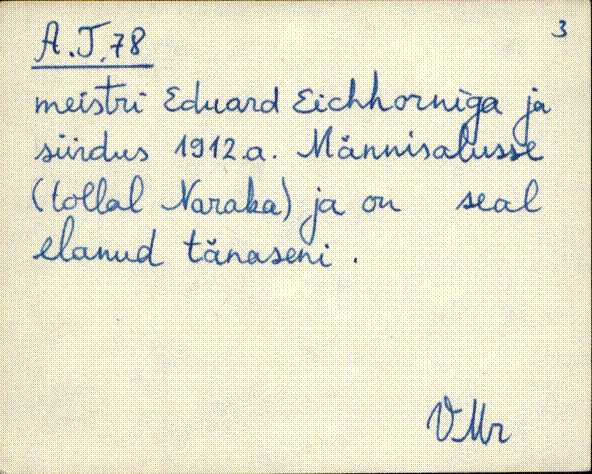 3
A.J.78
meistri Eduard Eichhorniga ja
siirdus 1912.a. Männisalusse
(tollal Naraka) ja on seal
elanud tänaseni.
VMr